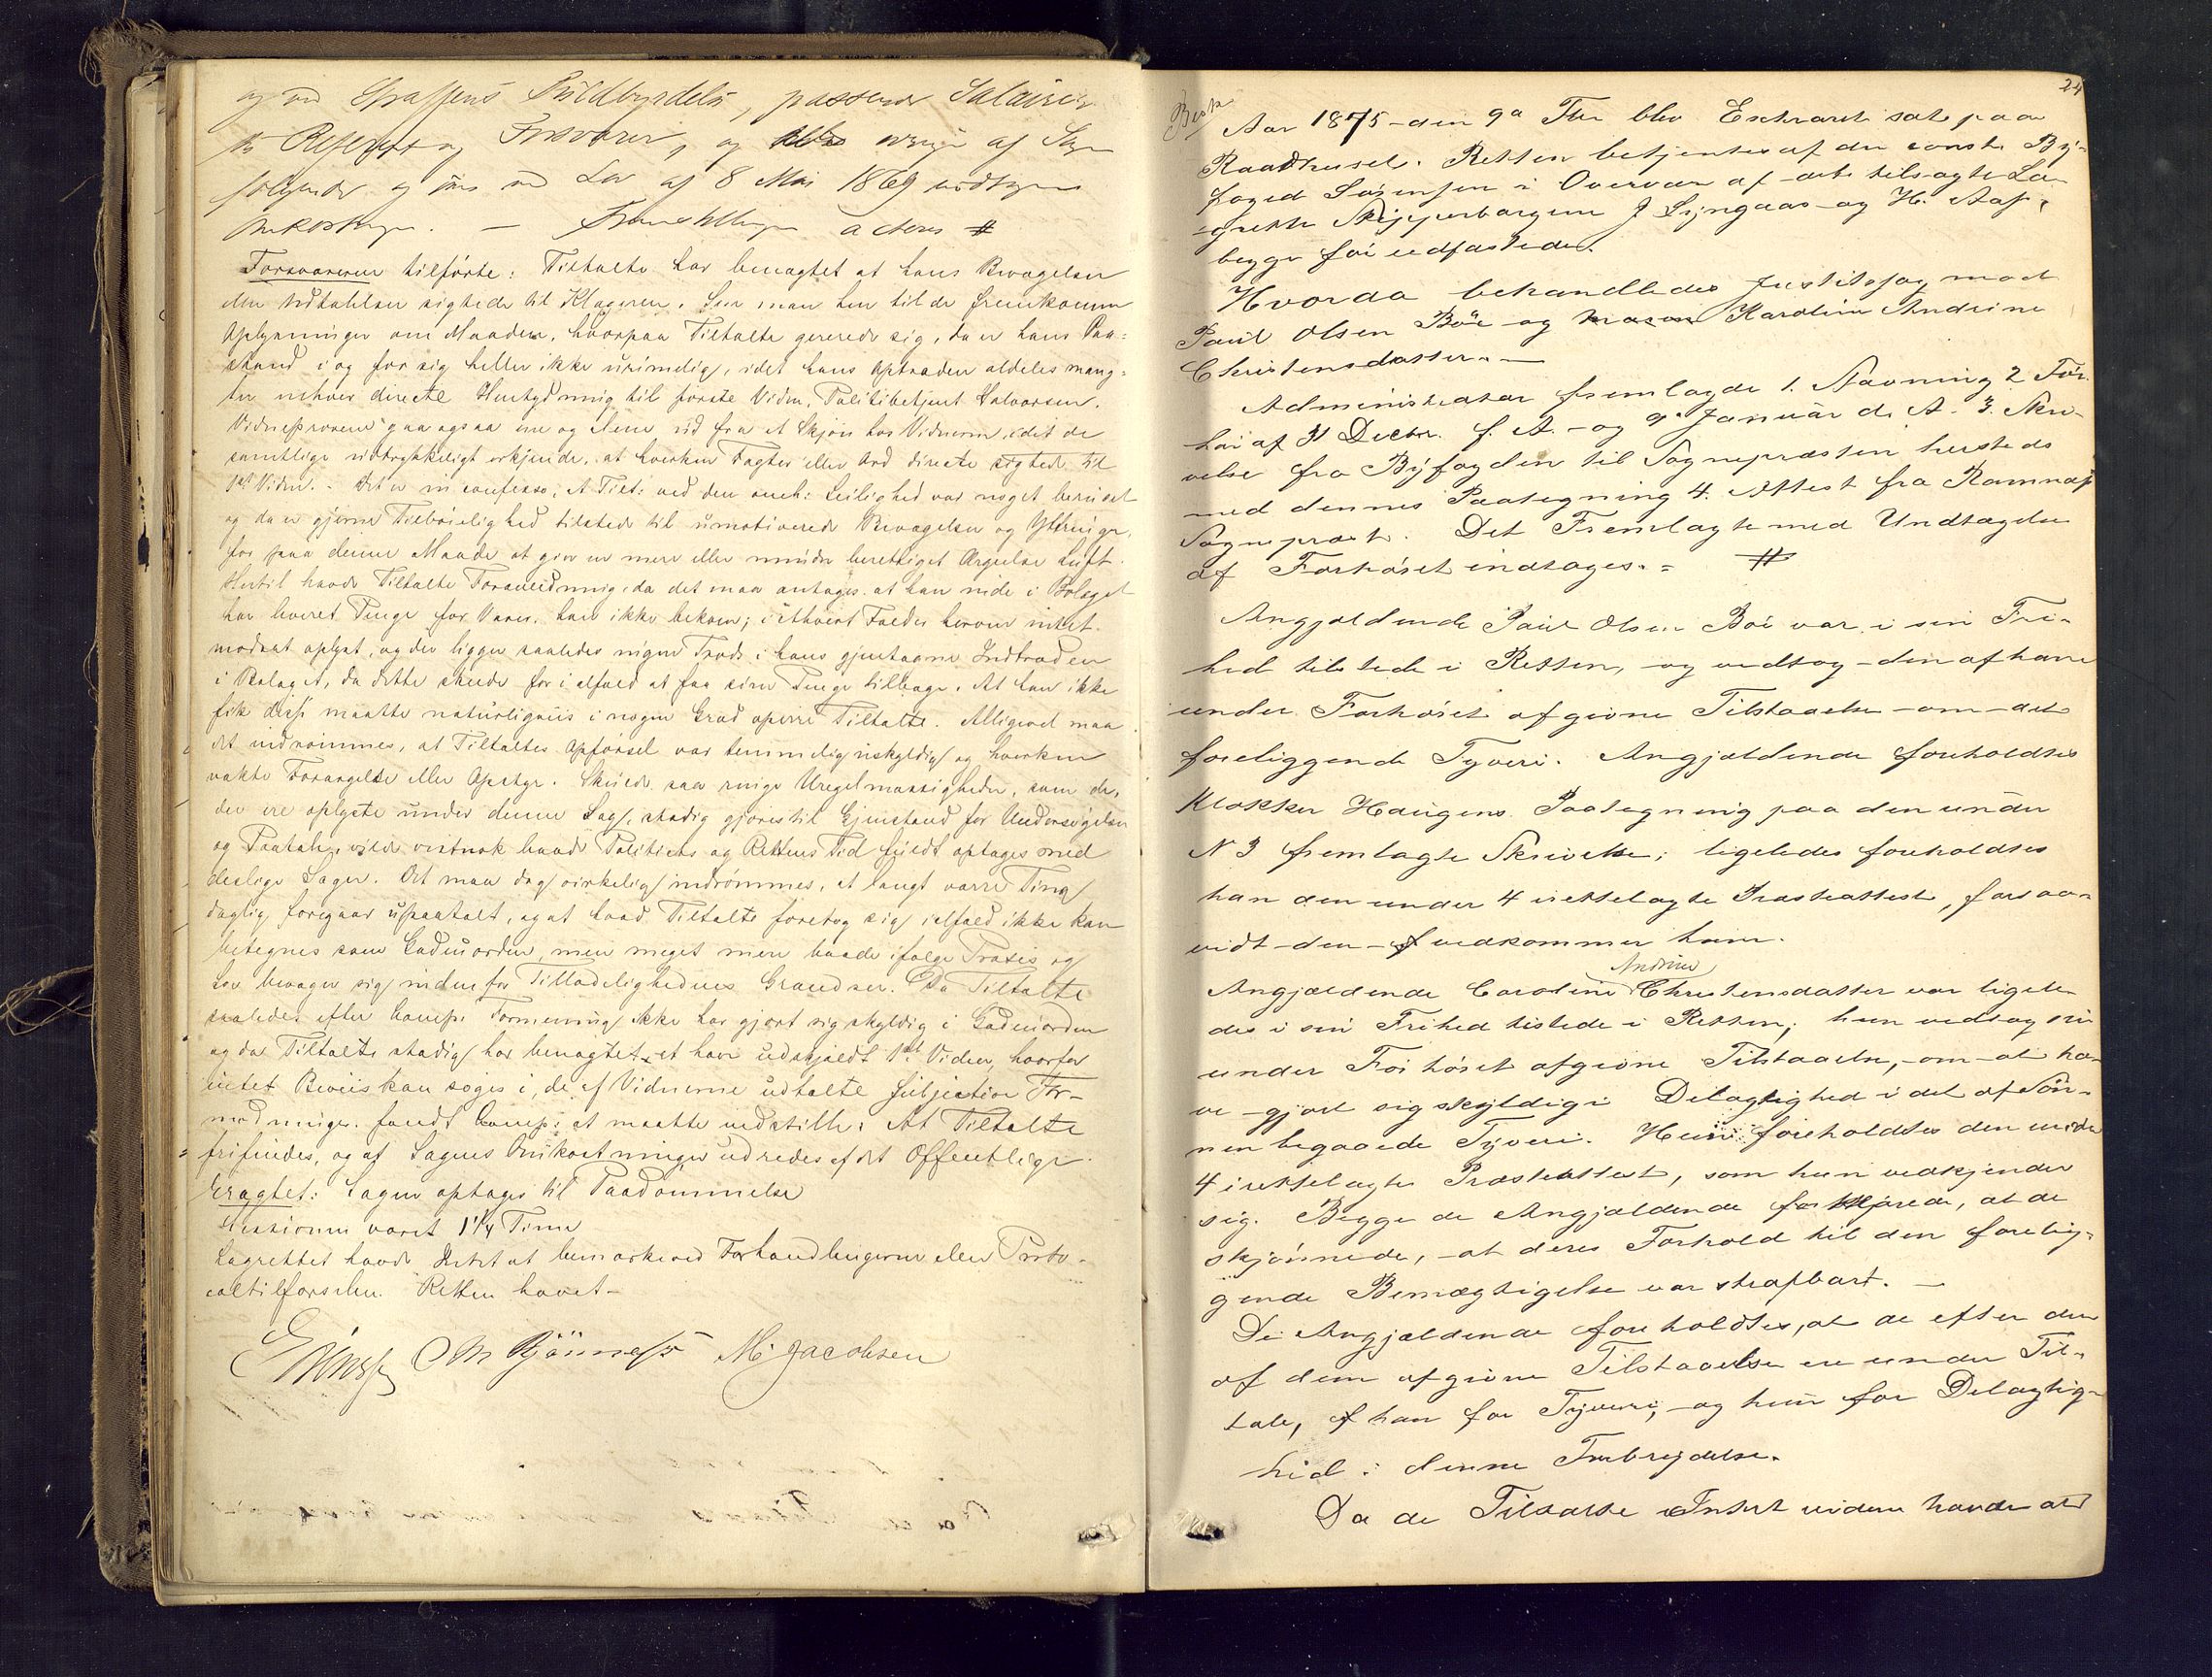 og ved Straffens Fuldbyrdelse, passende Salairer
til Referent og Forsvarer, og alle øvrige af Sagen
følgende og ikke ved Lov af 8 Mai 1869 undtagne
Omkostninger. — Fremstillingen acteres #
Forsvareren tilførte: Tiltalte har benægtet at hans Bevægelser
eller Udtalelser sigtede til Klageren. Seer man hen til de fremkomne
Oplysninger om Maaden, hvorpaa Tiltalte gererede sig, da er hans Paa-
stand i og for sig heller ikke urimelig, idet hans Optræden aldeles mang-
ler enhver directe Hentydning til første Vidne, Politibetjent Halvorsen.
Vidneprovene gaa ogsaa ene og alene ud fra et Skjøn hos Vidnerne, idet de
samtlige udtrykkeligt erkjende, at hverken Fagter eller Ord directe sigtede til
1ste Vidne. - Det er in confesso, at Tilt: ved den omh: Leilighed var noget beruset
og da er gjerne Tilbøielighed tilstede til umotiverede Bevægelser og Yttringer,
for paa denne Maade at give en mere eller mindre berettiget Ærgrelse Luft.
Hertil havde Tiltalte Foranledning, da det maa antages at han inde i Bolaget
har leveret Penge for Varer, han ikke bekom; i ethvert Fald er herom intet
modsat oplyst, og der ligger saaledes ingen Trods i hans gjentagne Indtræden
i Bolaget, da dette skede for i alfald at faa sine Penge tilbage. At han ikke
fik disse maatte naturligviis i nogen Grad opirre Tiltalte. Alligevel maa
det indrømmes, at Tiltaltes Opførsel var temmelig uskyldig og hverken
vakte Forargelse eller Opstyr. Skulde saa ringe Uregelmæssigheder, som de,
der ere oplyste under denne Sag, stadig gjøres til Gjenstand for Undersøgelser
og Paatale, vilde vistnok baade Politiets og Rettens Tid fuldt optages med
deslige Sager. Det maa dog virkelig indrømmes, at langt værre Ting
daglig foregaar upaatalt, og at hvad Tiltalte foretog sig ialfald ikke kan
betegnes som Gadeuorden, men meget mere baade ifølge Praxis og
Lov bevæger sig indenfor Tilladelighedens Grændser. Da Tiltalte
saaledes efter Comp: Formening ikke har gjort sig skyldig i Gadeuorden
og da Tiltalte stadig har benægtet, at have udskjeldt 1ste Vidne, hvorfor
intet Beviis kan søges i, de af Vidnerne udtalte subjective For-
modninger, fandt Comp: at maatte nedstille: At Tiltalte
frifindes, og af Sagens Omkostninger udredes af det Offentlige.
Eragtet: Sagen optages til Paadømmelse
Sessionen varet 1 1/4 Time
Lagrettet havde Intet at bemærke ved Forhandlingerne eller Proto-
coltilførselen. Retten hævet -
M. Jacobsen
24
Aar 1875 - den 9de Fbr blev Extraret sat paa
Raadhuset. Retten betjentes af den const. By-
foged Sørensen i Overvær af det tilsagte La-
grette Skipperborgerne J Lyngaas og H. Aas,
begge før edfæstede.
Hvorda behandledes Justitssag mod
Paul Olsen Bøe og Karoline Andrine
Christensdatter. —
Administrator fremlagde 1. Stævning 2 For-
hør af 31 Decbr. f. A. - og 9 Januar d. A. 3. Skri-
velse fra Byfogden til Sognepræsten hersteds
med dennes Paategning 4. Attest fra Ramnæs
Sognepræst. Det Fremlagte med Undtagelse
af Forhøret indtages. = #
Angjældende Paul Olsen Bøe var i sin Fri-
hed tilstede i Retten, og vedtog den af ham
under Forhøret afgivne Tilstaaelse om det
foreliggende Tyveri. Angjældende foreholdtes
Klokker Haugens Paategning paa den under
N 3 fremlagte Skrivelse; ligeledes foreholdtes
han den under 4 irettelagte Præsteattest, forsaa-
vidt den vedkommer ham.
Andrine
Angjældende Caroline Christensdatter var ligele-
des i sin Frihed tilstede i Retten; hun vedtog sin
under Forhøret afgivne Tilstaaelse, om at ha-
ve gjort sig skyldig i Delagtighed i det af Søn-
nen begaaede Tyveri. Hun foreholdtes den under
4 irettelagte Præsteattest, som hun vedkjender
sig. Begge de Angjældende forklarede, at de
skjønnede, at deres Forhold til den forelig-
gende Bemægtigelse var strafbart. —
De Angjældende foreholdtes, at de efter den
af dem afgivne Tilstaaelse ere under Til-
tale, han for Tyveri, og hun for Delagtig-
hed i denne Forbrydelse.
Da de Tiltalte Intet videre havde at